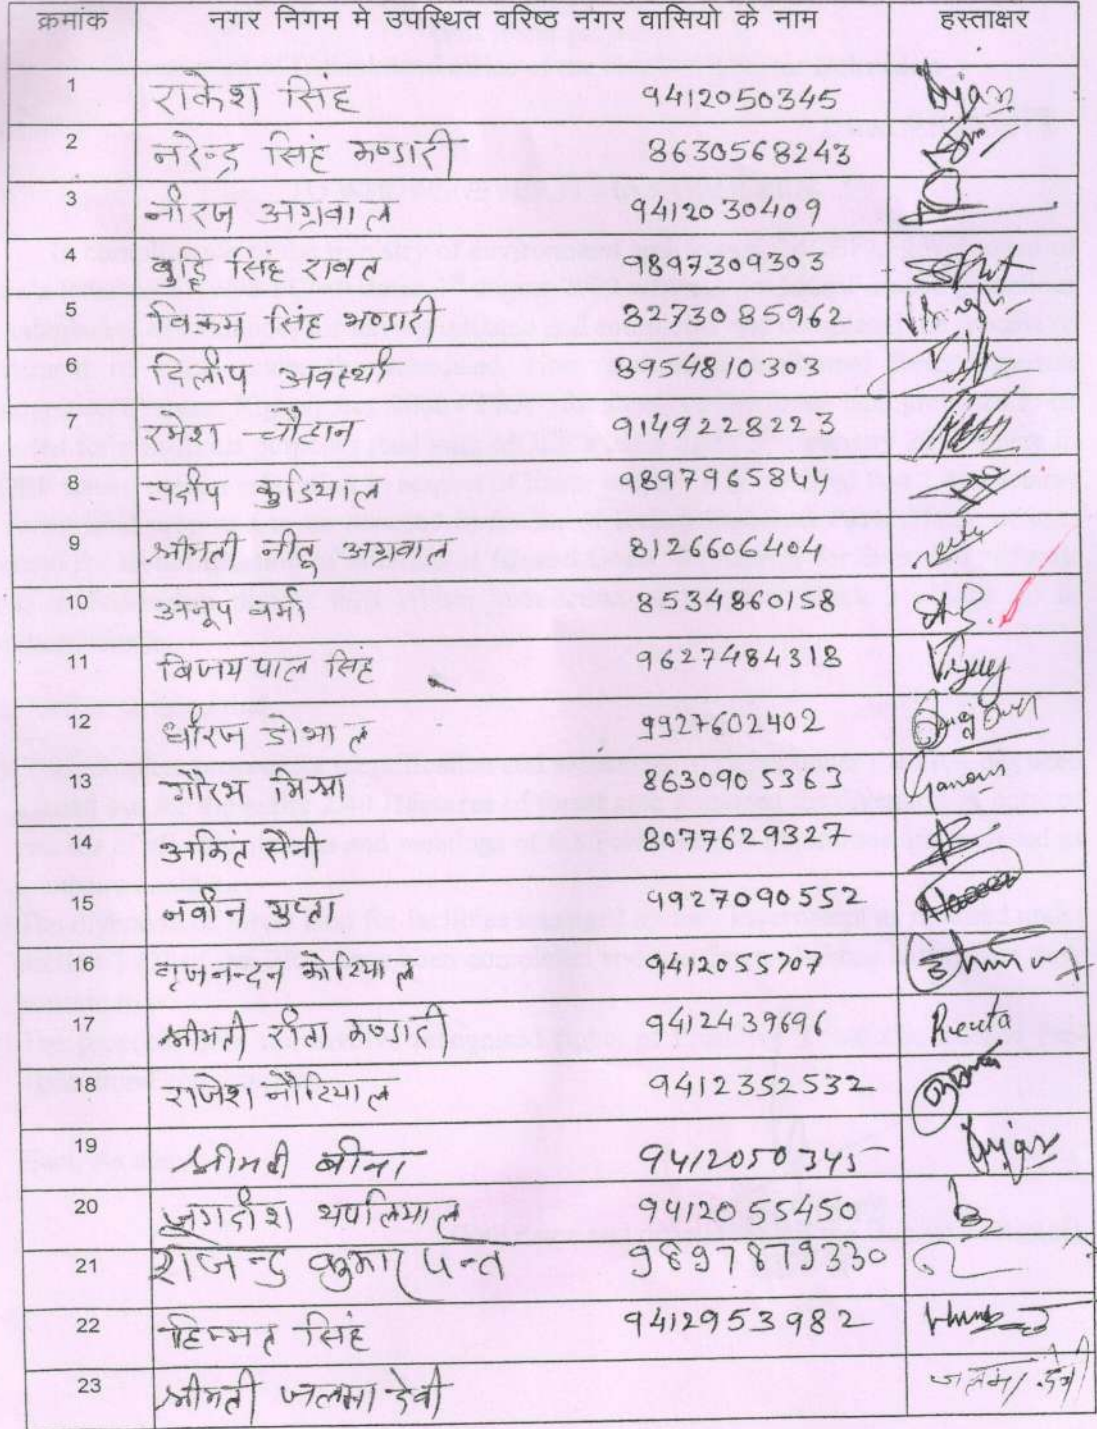 क्रमांक नगर निगम मे उपस्थित वरिष्ठ नगर वासियो के नाम हस्ताक्षर
1 राकेश सिंह 9412050345
2 नरेन्द्र सिंह भण्डारी 8630568243
3 नीरज अग्रवाल 9412030409
4 बुद्धि सिंह रावत 9897309303
5 विक्रम सिंह भण्डारी 8273085962
6 दिलीप अवस्थी 8954810303
7 रमेश चौहान 9149228223
8 प्रदीप कुडियाल 9897965844
9 श्रीमती नीतू अग्रवाल 8126606404 neetu
10 अनूप वर्मा 8534860158
11 विजय पाल सिंह 9627484318 Vijay
12 धीरज डोभाल 9927602402
13 गौरभ मिश्रा 8630905363 Gaurav
14 अमित सैनी 8077629327
15 नवीन गुप्ता 9927090552
16 बृजनन्दन नौटियाल 9412055707
17 श्रीमती रीता भण्डारी 9412439696 Reeta
18 राजेश नौटियाल 9412352532
19 श्रीमती बीना 9412050345
20 जगदीश थपलियाल 9412055450
21 राजेन्द्र कुमार पन्त 9897879330
22 हिम्मत सिंह 9412953982
23 श्रीमती जलमा देवी जलमा देवी